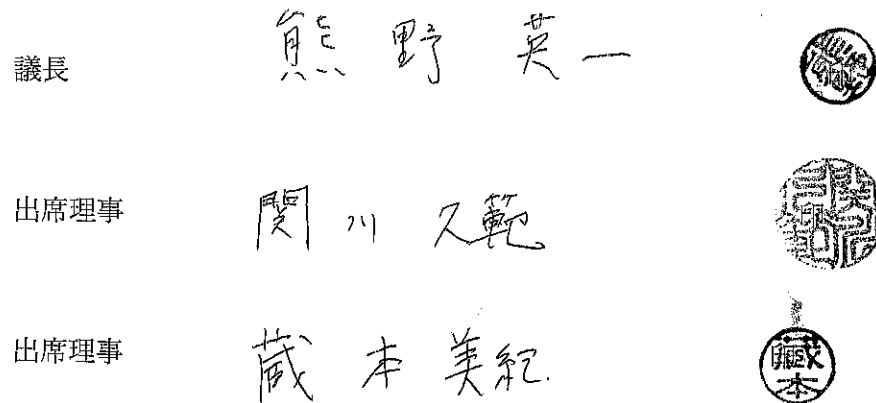 議長 熊野 英一
出席理事 関川 久範
出席理事 蔵本 美紀
蔵本